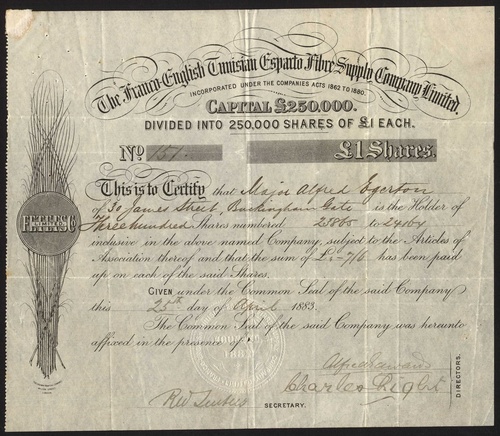 The Franco-English Tunisian Esparto Fibre Supply Company Limited.
INCORPORATED UNDER THE COMPANIES ACTS 1862 TO 1880.
CAPITAL £250,000.
DIVIDED INTO 250,000 SHARES OF £1 EACH.
No. 151. £1 Shares.
This is to Certify that Major Alfred Egerton
of 30 James Street, Buckingham Gate is the Holder of
Three hundred Shares numbered to
inclusive in the above named Company, subject to the Articles of
Association thereof and that the sum of £ - 7/6 has been paid
up on each of the said Shares.
GIVEN under the Common Seal of the said Company
this 25th day of April 1883.
The Common Seal of the said Company was hereunto
affixed in the presence of
Alfred
Charles
DIRECTORS.
SECRETARY.